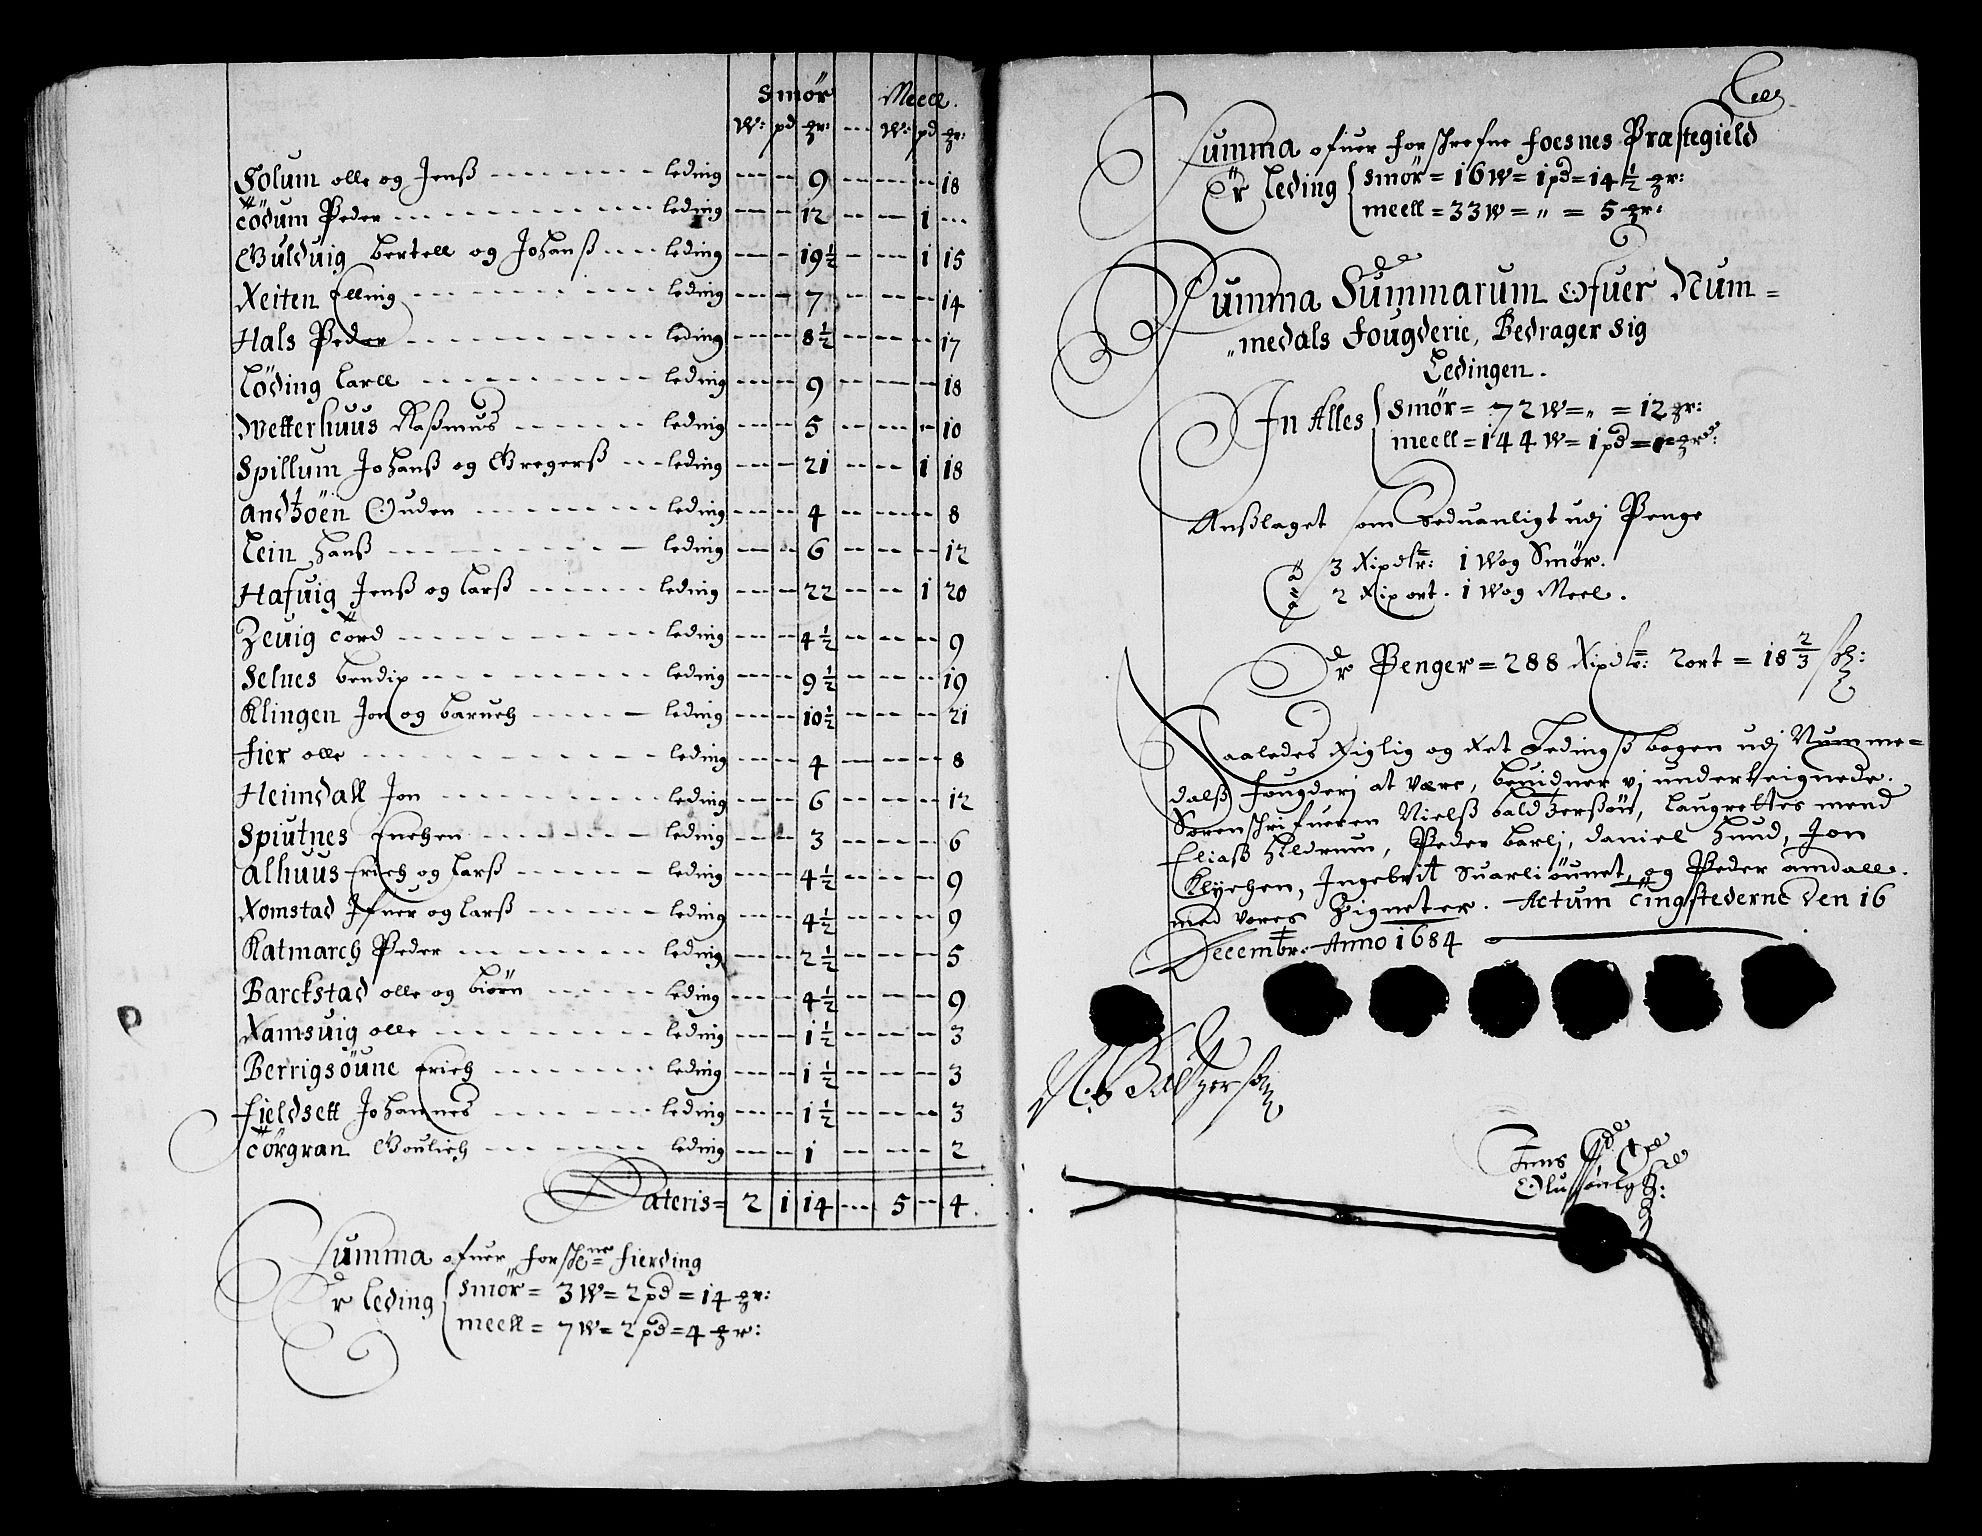 Smør Meell.
W: pd ℔r: --- W: pd ℔r:
Solum olle og Jenß - - - leding --- -- 9 --- -- 18
Tødum Peder - - - leding --- -- 12 -- -- 1 ---
Gulduig bertell og Johanß - - - leding --- -- 19½ -- --- 1 15
Reiten Elling - - - leding --- -- 7 -- --- -- 14
Hals Peder - - - leding --- -- 8½ -- --- -- 17
Løding larll - - - leding --- -- 9 -- --- -- 18
Wetterhuus Raßmus - - - leding --- -- 5 -- --- -- 10
Spillum Johanß og Gregerß - - - leding --- -- 21 -- -- 1 18
andhøen Ouden - - - leding --- -- 4 -- --- -- 8
Lein hanß - - - leding --- -- 6 -- --- -- 12
Hafuig Jenß og larß - - - leding --- -- 22 -- --- 1 20
Zeuig Tord - - - leding --- -- 4½ -- --- -- 9
Selnes bendix - - - leding --- -- 9½ -- --- -- 19
Klingen Jon og baruch - - - leding --- -- 10½ -- --- -- 21
Fier olle - - - leding --- -- 4 -- --- -- 8
Heimdall Jon - - - leding --- -- 6 -- --- -- 12
Spiutnes Enchen - - - leding --- -- 3 -- --- -- 6
alhuus Erich og Larß - - - leding --- -- 4½ -- --- -- 9
Romstad Ifuer og larß - - - leding --- -- 4½ -- --- -- 9
Katmarch Peder - - - leding --- -- 2½ -- --- -- 5
Barckstad olle og biørn - - - leding --- -- 4½ -- --- -- 9
Ramsuig olle - - - leding --- -- 1½ -- --- -- 3
Berrigsøune Erich - - - leding --- -- 1½ -- --- -- 3
Fieldsett Johannes - - - leding --- -- 1½ -- --- -- 3
Tørgran Goulich - - - leding --- -- 1 -- --- -- 2
Lateris = 2 1 14 --- 5 -- 4.
Summa ofuer forschne Fierding
Er leding smør = 3 W = 2 pd = 14 ℔r:
meell = 7 W = 2 pd = 4 ℔r:
Summa ofuer forschrefne Foesnes Præstegield
Er Leding smør = 16 W = 1 pd = 14½ ℔r:
meell = 33 W = „ = 5 ℔r:
Summa Summarum Ofuer Num=
„medals Fougderie, Bedrager sig
Ledingen.
In Alles smør = 72 W = „ = 12 ℔r:
meell = 144 W = 1 pd = 1 ℔r:
Anßlaget som Seduanligt udj Penge
â 3 Rixdlr: 1 Wog Smør.
â 2 Rixort. 1 Wog Meel.
Er Penger = 288 Rixdlr: 2 ort = 18⅔ sch:
Saaledes Rigtig og Ret Ledingß bogen udj Numme=
dalß Fougderj at være, beuidner vj underteignede.
Sorenschrifueren Nielß baldzerßøn, Laugrettes mend
Eliaß hildrum, Peder barlj, Daniel Hund, Jon
Klychen, Ingebrit Suarliøunet, og Peder amdall.
med vores Zigneter. Actum Tingstederne den 16
Decembr: Anno 1684
N: Baltzersøn
Jens
Olufsøn